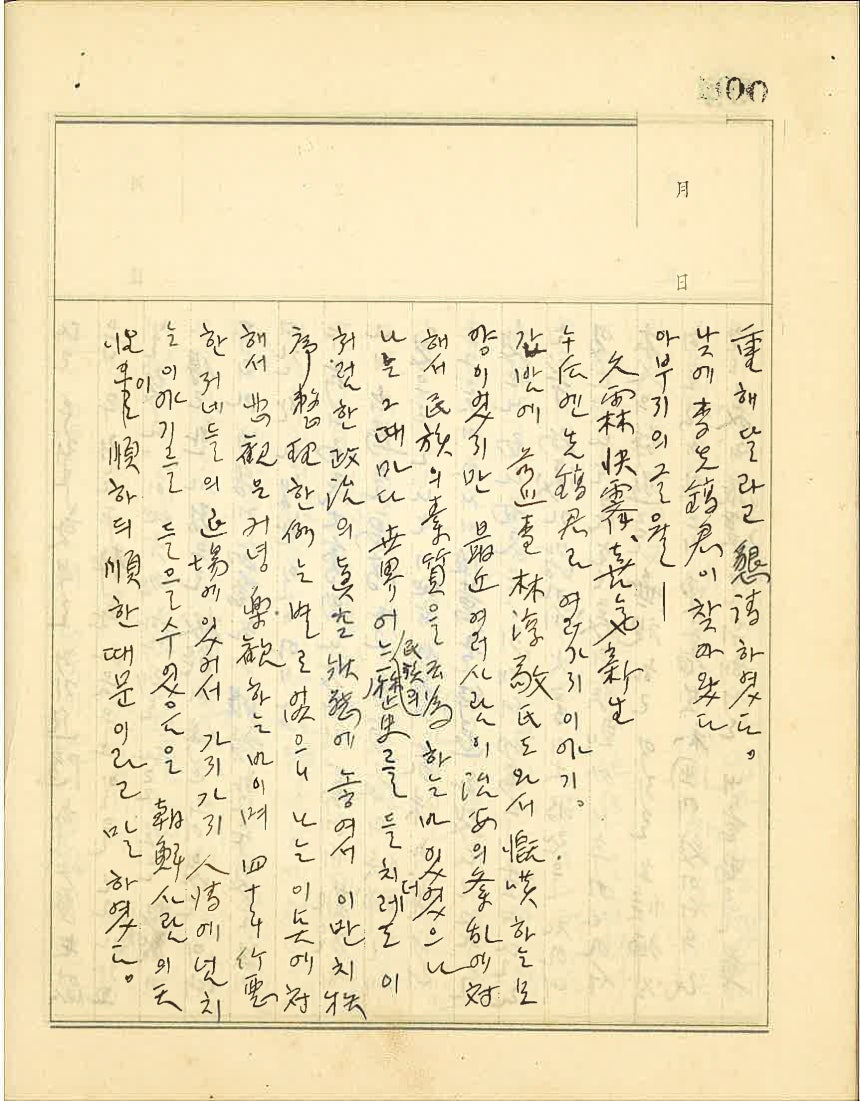 00
月
日
重해달라고 懇請하였다。
낮에 李先鎬君이 찾아왔다
아부지의 글월ㅣ
久霖快霽、喜氣新生
午后엔 先鎬君과 여러가지 이야기。
간밤에 林淳敬氏도 와서 慨嘆하는 모
양이였지만 最近 여러사람이 治安의 紊乱에 対
해서 民族의 素質을 云爲하는 바 있었으나
나는 그때마다 世界 어느 民族의 歷史를 들치레도 이
더
처럼한 政治의 眞空狀態에 놓여서 이만치 秩
序整理한 例는 별로 없으니 나는 이 点에 対
해서 悲観은커녕 楽観하는 바이며 四十年 作惡
한 저네들의 退場에 있어서 가지가지 人情에 넘치
는 이야기를 들을 수 있음은 朝鮮사람의 天
性이 順하되 順한 때문이라고 말하였다。